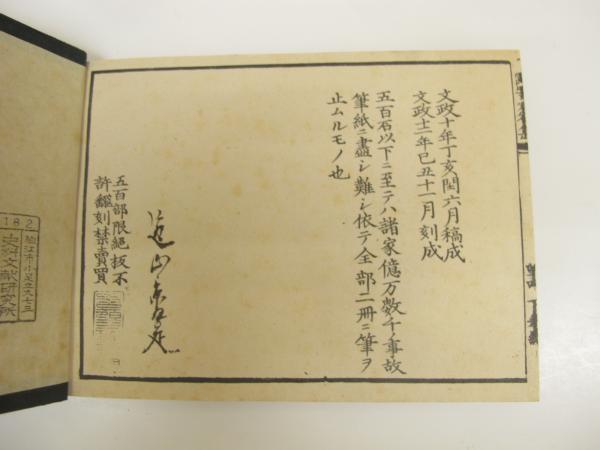 文政十年丁亥閏六月稿成
文政十二年己丑十一月刻成
五百石以下ニ至テハ諸家億万数千ノ事故
筆紙ニ盡シ難シ依テ全部二冊ニ筆ヲ
止ムルモノ也
五百部限絶板不
許飜刻禁賣買
182
史料文献研究